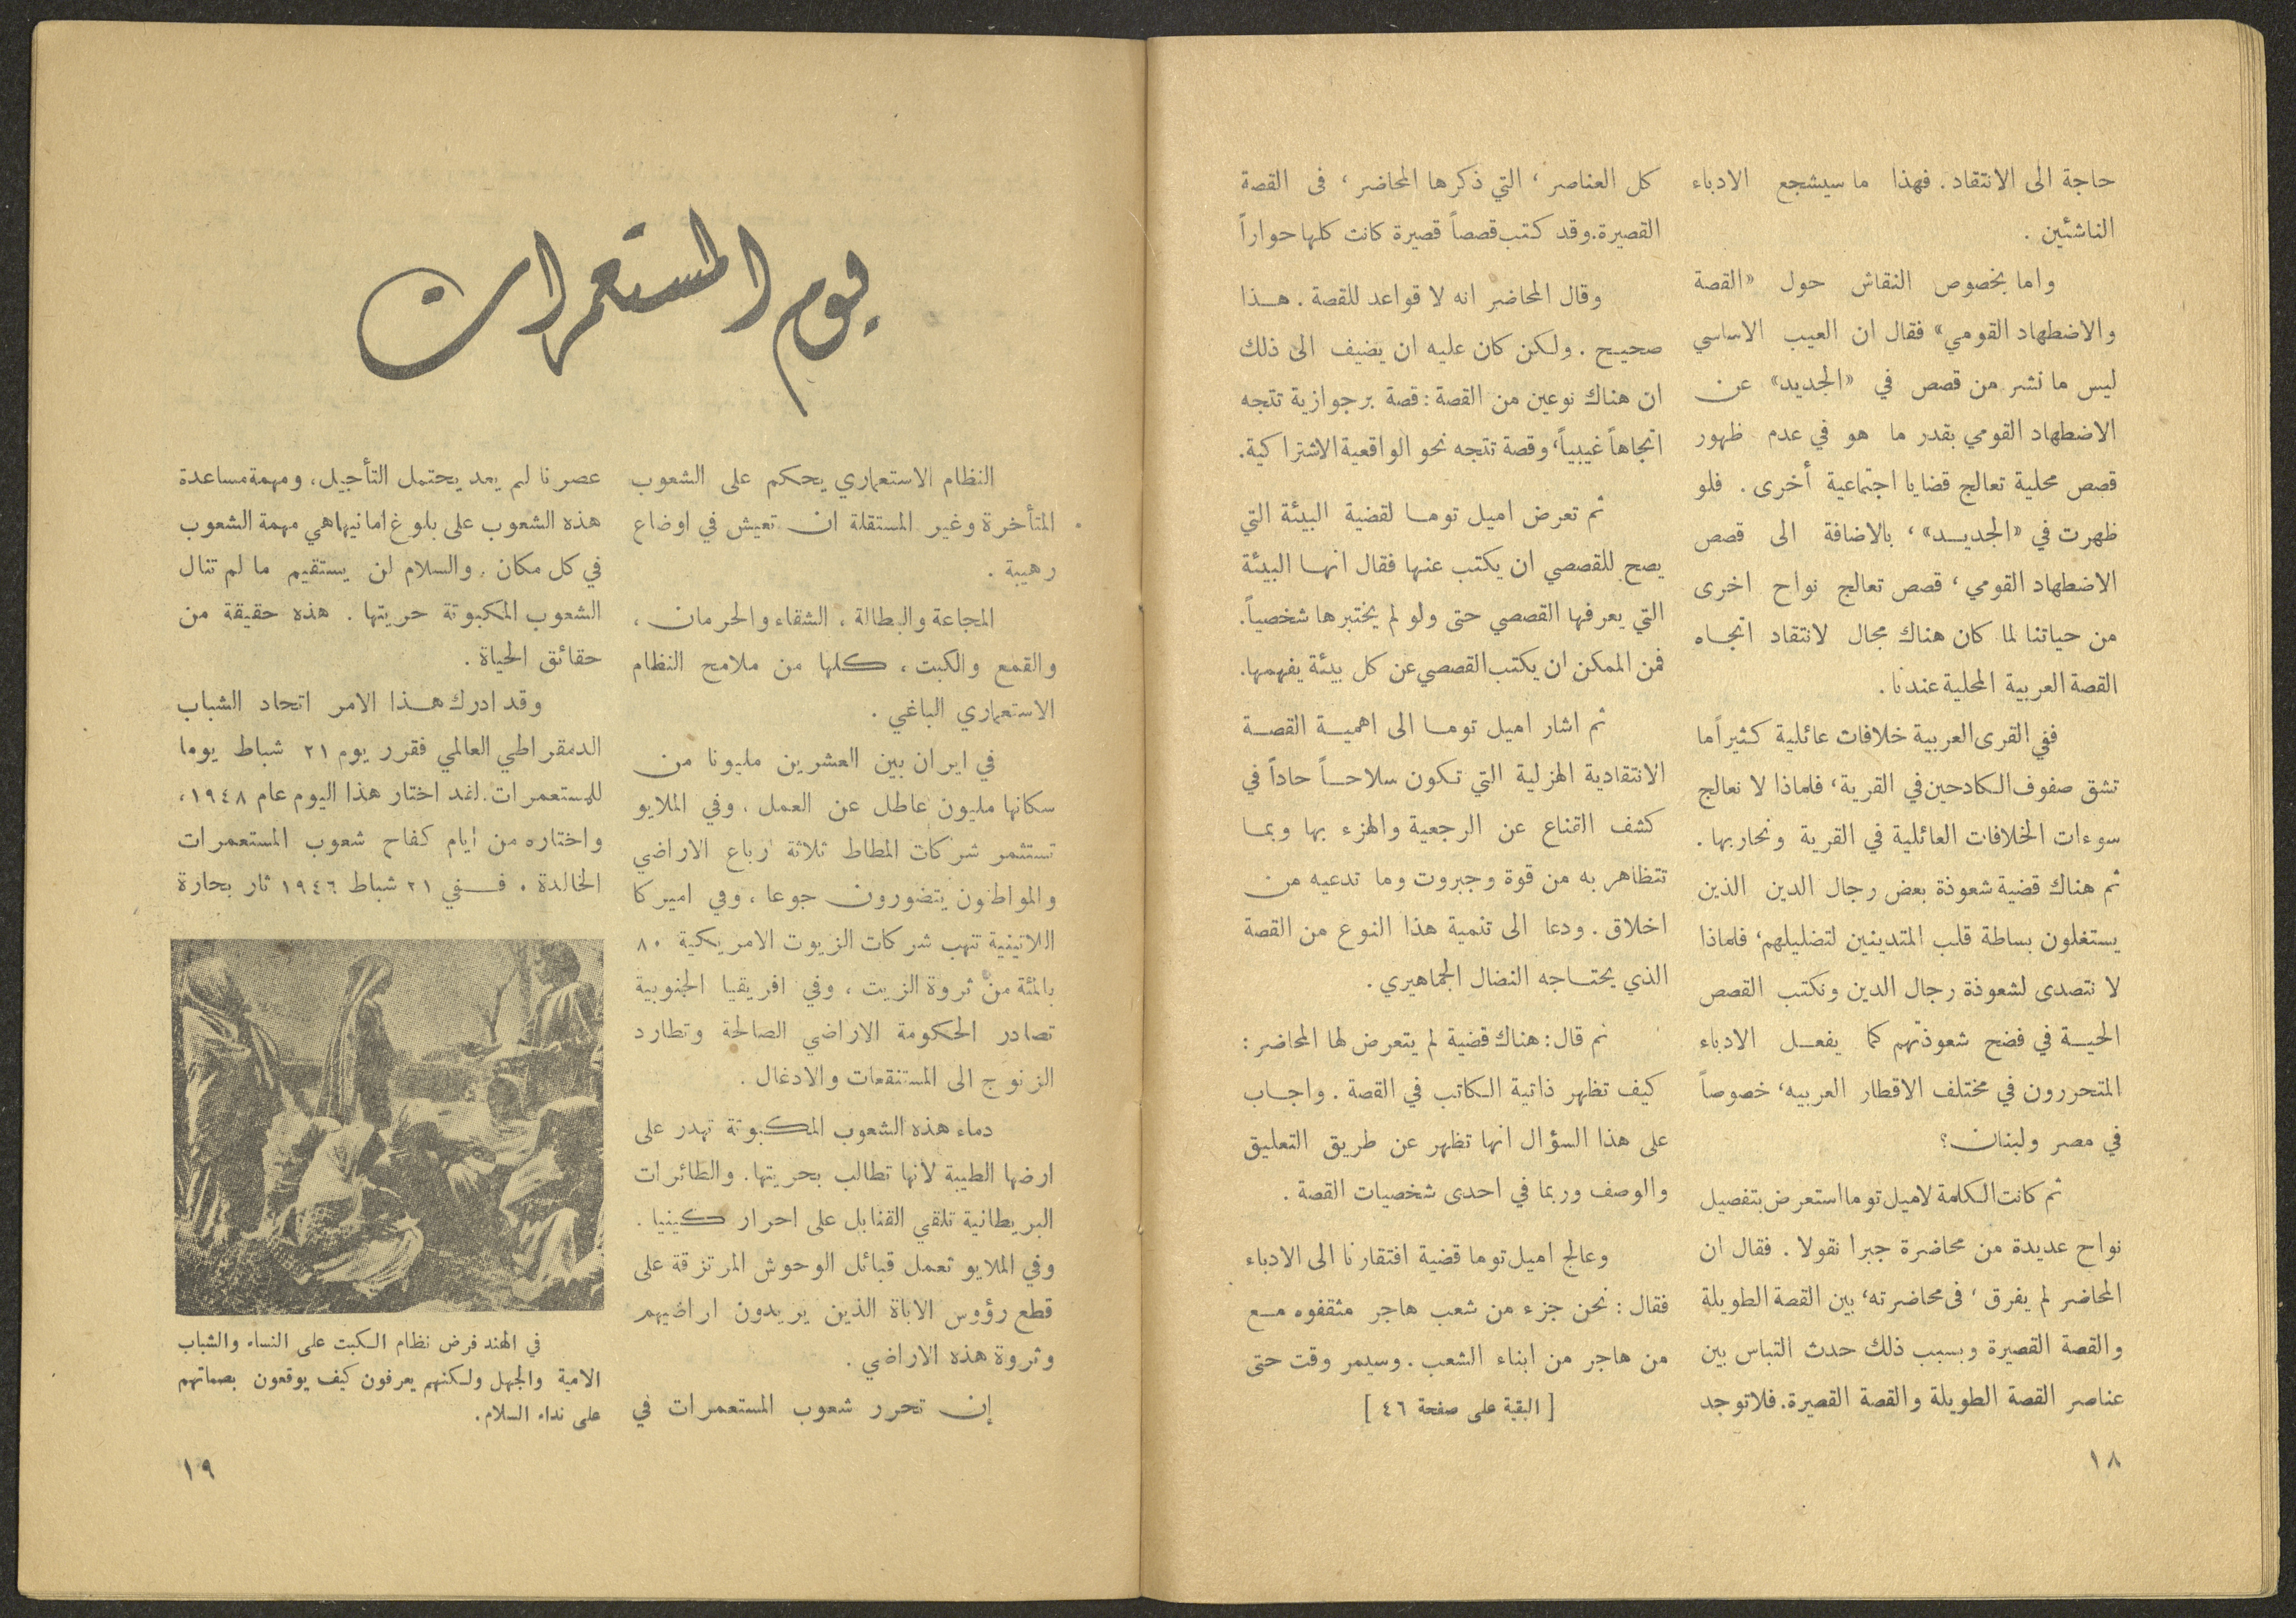 حاجة الى الانتقاد. فهذا ما سيشجع الادباء
الناشئين .
واما بخصوص النقاش حول «القصة
والاضطهاد القومي» فقال ان العيب الاساسي
ليس ما نشر من قصص في «الجديد» عن
الاضطهاد القومي بقدر ما هو في عدم ظهور
قصص محلية تعالج قضايا اجتماعية أخرى. فلو
ظهرت في «الجديد»، بالاضافة الى قصص
الاضطهاد القومي، قصص تعالج نواح اخرى
من حياتنا لما كان هناك مجال لانتقاد اتجاه
القصة العربية المحلية عندنا.
ففي القرى العربية خلافات عائلية كثيراً ما
تشق صفوف الكادحين في القرية، فلماذا لا نعالج
سوءات الخلافات العائلية في القرية ونحاربها.
ثم هناك قضية شعوذة بعض رجال الدين الذين
يستغلون بساطة قلب المتدينين لتضليلهم، فلماذا
لا نتصدى لشعوذة رجال الدين ونكتب القصص
الحية في فضح شعوذتهم كما يفعل الادباء
المتحررون في مختلف الاقطار العربيه، خصوصاً
في مصر ولبنان؟
ثم كانت الكلمة لاميل توما استعرض بتفصيل
نواح عديدة من محاضرة جبرا نقولا. فقال ان
المحاضر لم يفرق، فى محاضرته، بين القصة الطويلة
والقصة القصيرة وبسبب ذلك حدث التباس بين
عناصر القصة الطويلة والقصة القصيرة. فلا توجد
كل العناصر، التي ذكرها المحاضر، فى القصة
القصيرة. وقد كتب قصصاً قصيرة كانت كلها حواراً
وقال المحاضر انه لا قواعد للقصة. هذا
صحيح. ولكن كان عليه ان يضيف الى ذلك
ان هناك نوعين من القصة: قصة برجوازية تتجه
اتجاهاً غيبياً، وقصة تتجه نحو الواقعية الاشتراكية.
ثم تعرض اميل توما لقضية البيئة التي
يصح للقصصي ان يكتب عنها فقال انها البيئة
التي يعرفها القصصي حتى ولو لم يختبرها شخصياً.
فمن الممكن ان يكتب القصصي عن كل بيئة يفهمها.
ثم اشار اميل توما الى اهمية القصة
الانتقادية الهزلية التي تكون سلاحاً حاداً في
كشف القناع عن الرجعية والهزء بها وبما
تتظاهر به من قوة وجبروت وما تدعيه من
اخلاق. ودعا الى تنمية هذا النوع من القصة
الذي يحتاجه النضال الجماهيري.
ثم قال: هناك قضية لم يتعرض لها المحاضر:
كيف تظهر ذاتية الكاتب في القصة. واجاب
على هذا السؤال انها تظهر عن طريق التعليق
والوصف وربما في احدى شخصيات القصة.
وعالج اميل توما قضية افتقارنا الى الادباء
فقال: نحن جزء من شعب هاجر مثقفوه مع
من هاجر من ابناء الشعب. وسيمر وقت حتى
[ البقية على صفحة ٤٦ ]
١٨
يوم المستعمرات
النظام الاستعماري يحكم على الشعوب
المتأخرة وغير المستقلة ان تعيش في اوضاع
رهيبة .
المجاعة والبطالة، الشقاء والحرمان،
والقمع والكبت، كلها من ملامح النظام
الاستعماري الباغي.
في ايران بين العشرين مليونا من
سكانها مليون عاطل عن العمل، وفي الملايو
تستثمر شركات المطاط ثلاثة ارباع الاراضي
والمواطنون يتضورون جوعا، وفي اميركا
اللاتينية تنهب شركات الزيوت الامريكية ٨٠
بالمئة من ثروة الزيت، وفي افريقيا الجنوبية
تصادر الحكومة الاراضي الصالحة وتطارد
الزنوج الى المستنقعات والادغال.
دماء هذه الشعوب المكبوتة تهدر على
ارضها الطيبة لانها تطالب بحريتها. والطائرات
البريطانية تلقي القنابل على احرار كينيا.
وفي الملايو تعمل قبائل الوحوش المرتزقة على
قطع رؤوس الاباة الذين يريدون اراضيهم
وثروة هذه الاراضي.
إن تحرر شعوب المستعمرات في
عصرنا لم يعد يحتمل التأجيل، ومهمة مساعدة
هذه الشعوب على بلوغ امانيها هي مهمة الشعوب
في كل مكان. والسلام لن يستقيم ما لم تنال
الشعوب المكبوتة حريتها. هذه حقيقة من
حقائق الحياة.
وقد ادرك هذا الامر اتحاد الشباب
الدمقراطي العالمي فقرر يوم ٢١ شباط يوما
للمستعمرات. لقد اختار هذا اليوم عام ١٩٤٨،
واختاره من ايام كفاح شعوب المستعمرات
الخالدة. ففي ٢١ شباط ١٩٤٦ ثار بحارة
في الهند فرض نظام الكبت على النساء والشباب
الامية والجهل ولكنهم يعرفون كيف يوقعون بصماتهم
على نداء السلام.
١٩